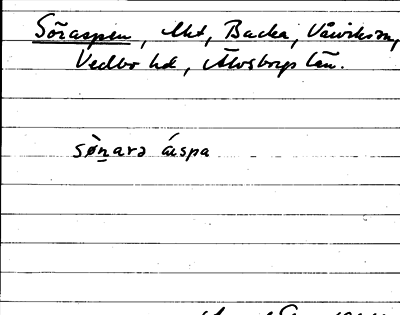 Söraspen, Mkt, Backa, Vårviksn,
Vedbo hd, Älvsborgs län.
sø̀n̲arə áspa